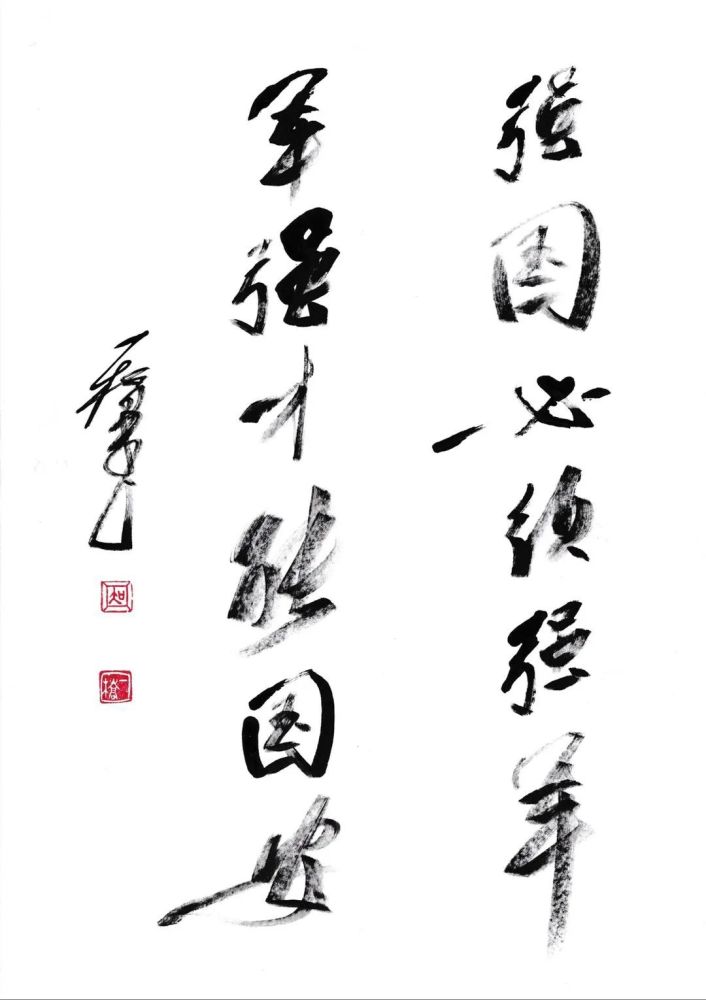 强国必须强军
军强才能国安
知
一桥